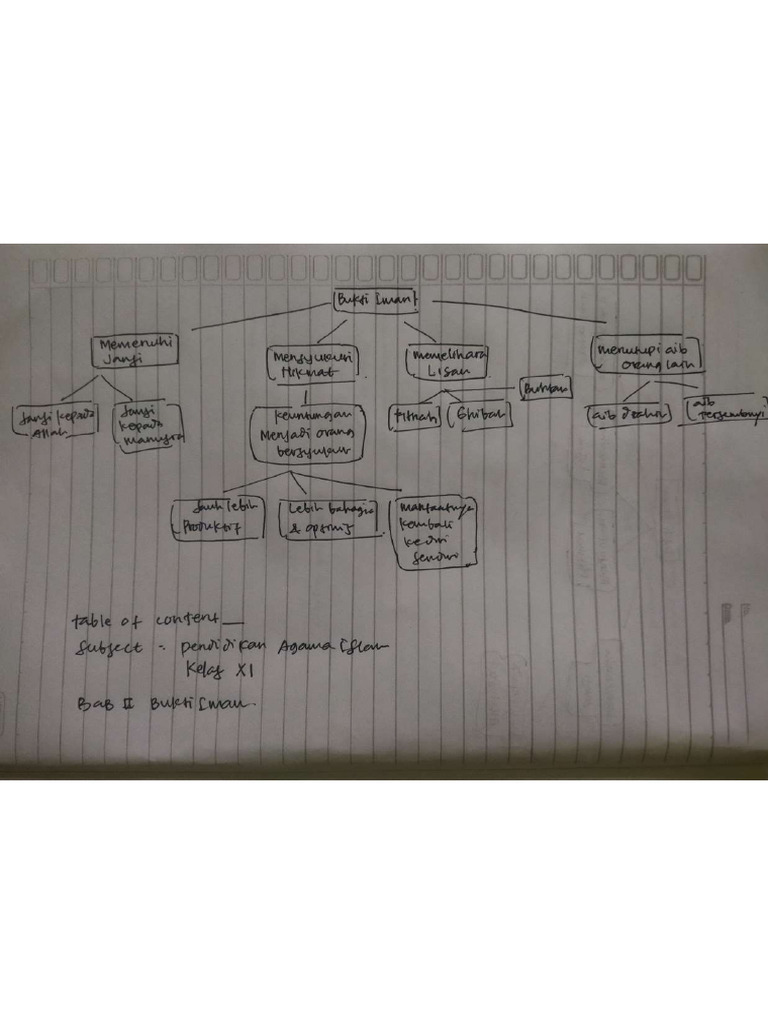 Bukti Iman
Memenuhi
Janji
Mensyukuri
Nikmat
Memelihara
Lisan
Menutupi aib
orang lain
Buhtan
Janji kepada
Allah
Janji
kepada
manusia
Keuntungan
Menjadi orang
bersyukur
Fitnah
Ghibah
aib
tersembunyi
Jauh lebih
Produktif
Lebih bahagia
& optimis
Manfaatnya
kembali
ke diri
sendiri
table of content
Subject : Pendidikan Agama Islam
Kelas XI
Bab II Bukti Iman.